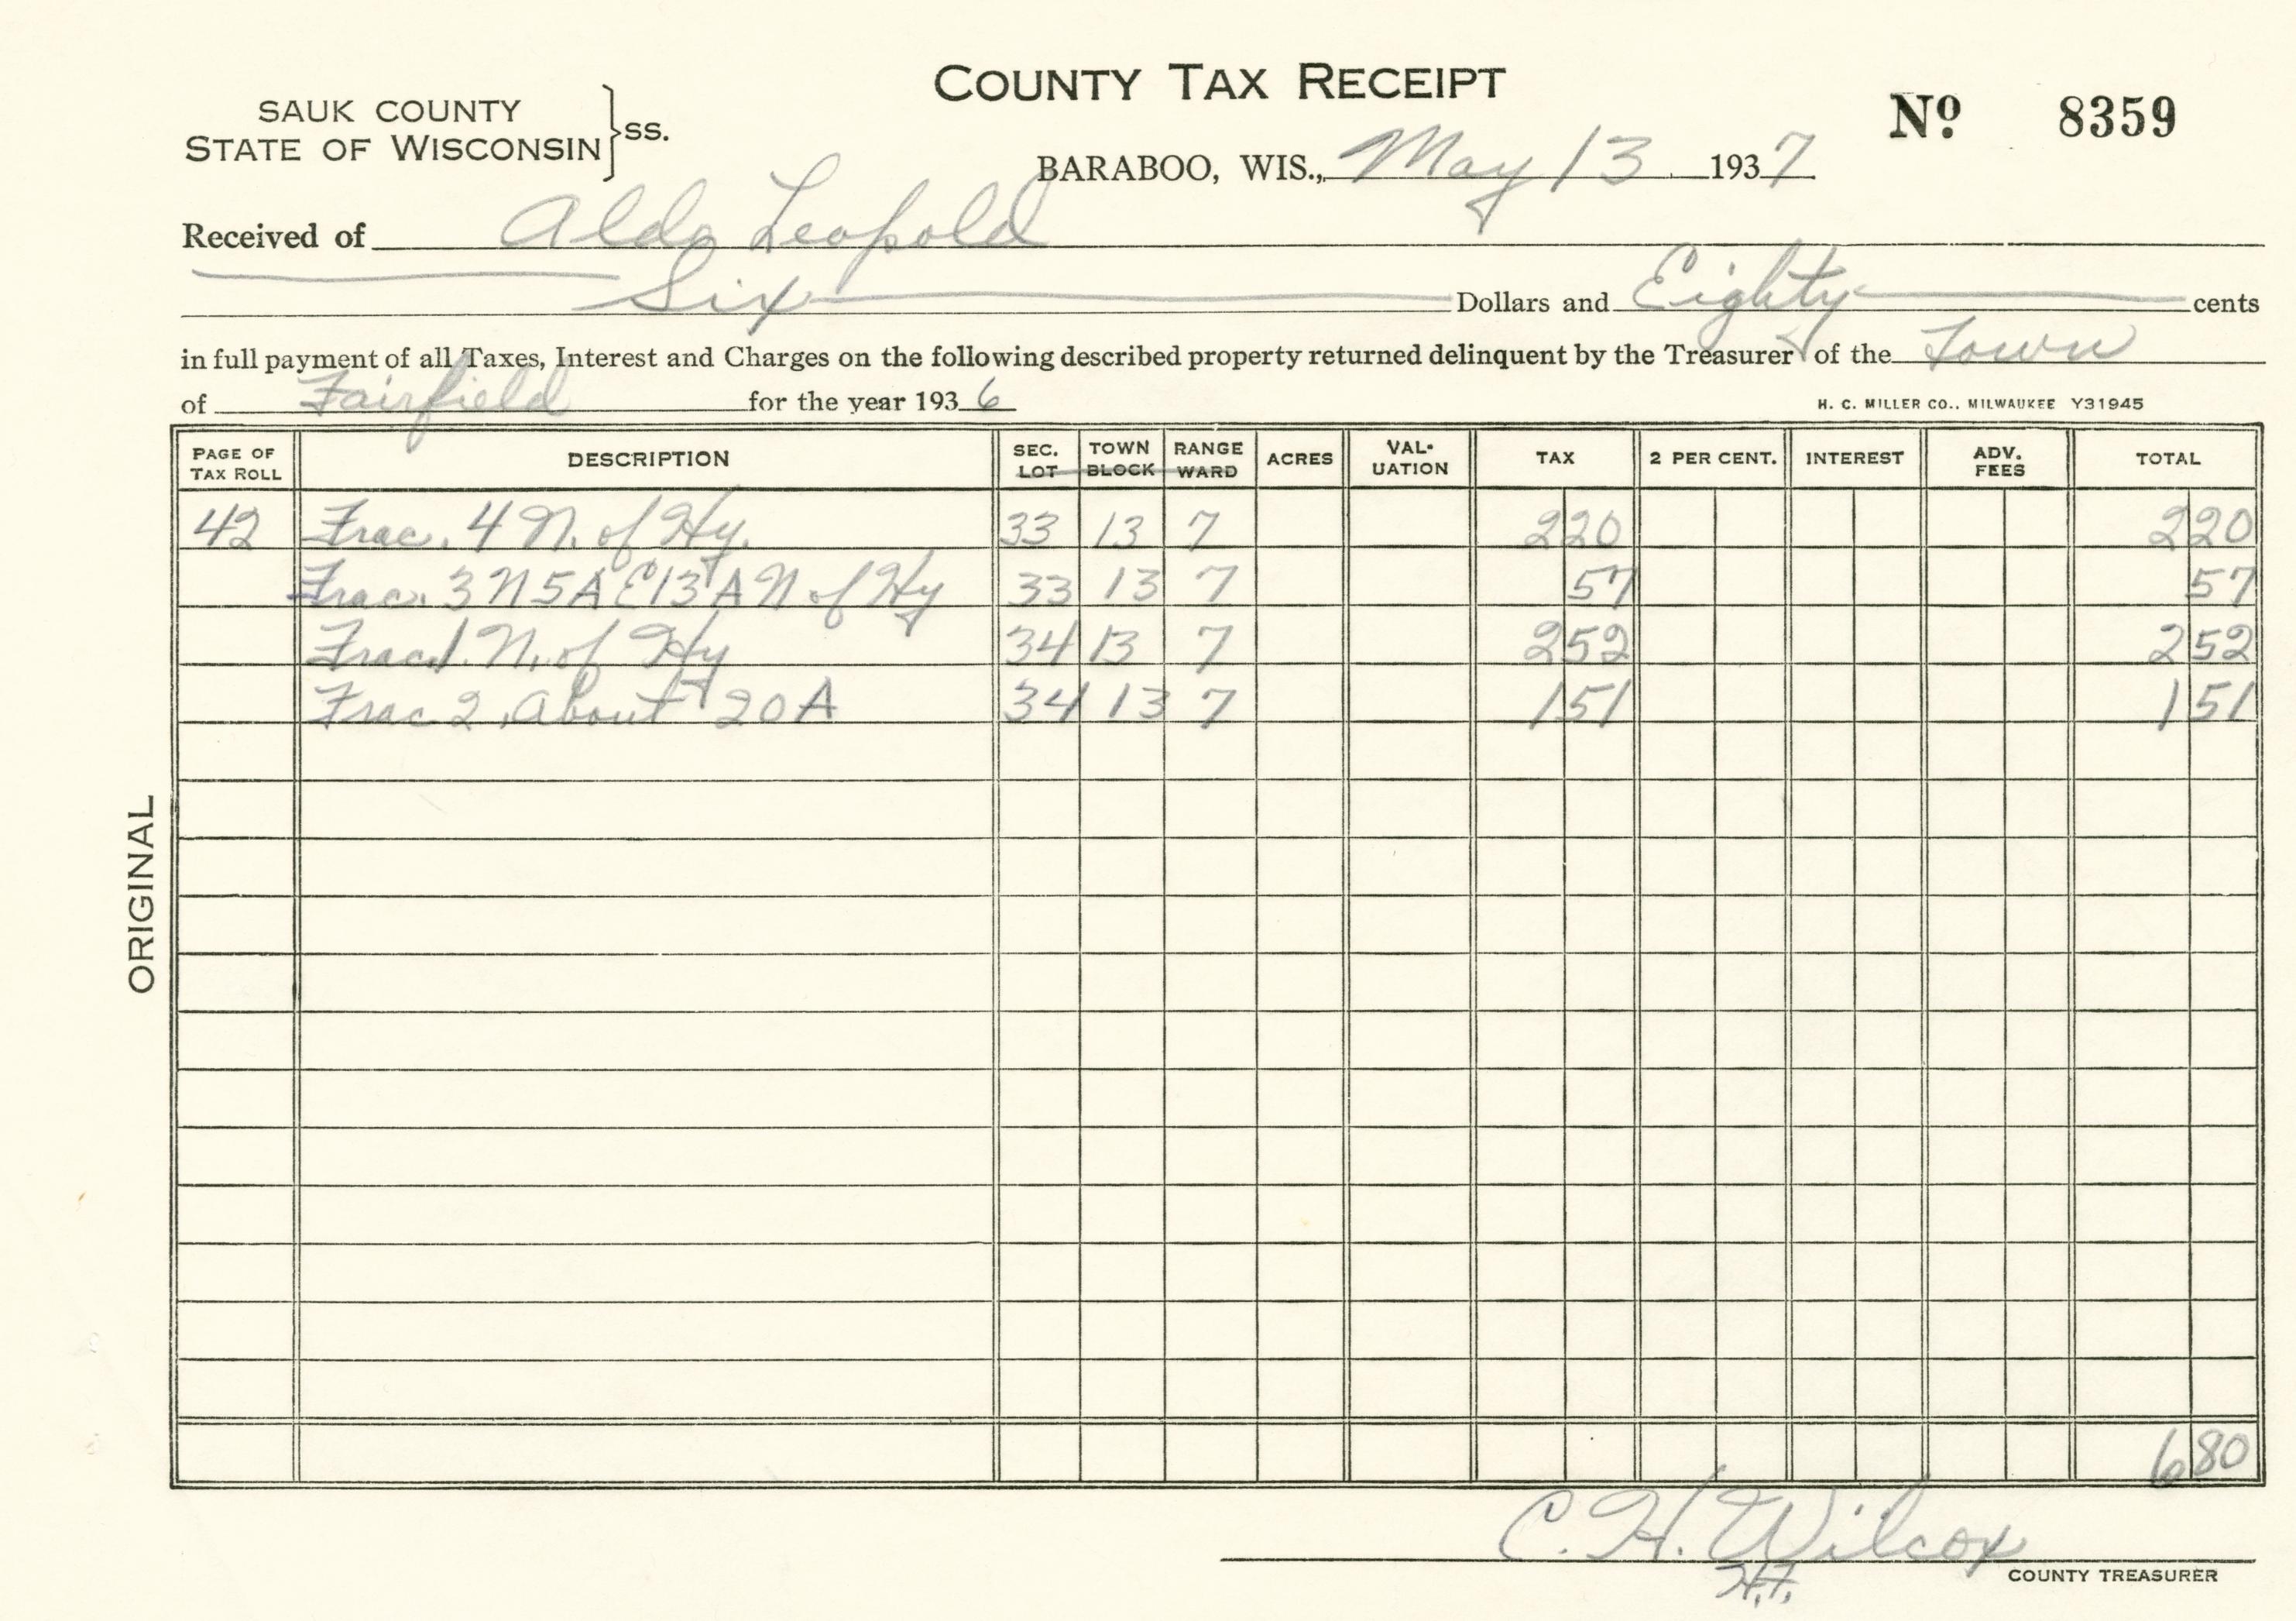 COUNTY TAX RECEIPT
SAUK COUNTY
STATE OF WISCONSIN } SS.
Nº 8359
BARABOO, WIS., May 13 1937
Received of Aldo Leopold
Six Dollars and Eighty cents
in full payment of all Taxes, Interest and Charges on the following described property returned delinquent by the Treasurer of the Town
of Fairfield for the year 1936
H. C. MILLER CO., MILWAUKEE Y31945
PAGE OF TAX ROLL DESCRIPTION SEC. LOT TOWN BLOCK RANGE WARD ACRES VAL-UATION TAX 2 PER CENT. INTEREST ADV. FEES TOTAL
42 Frac. 4 N. of Hy. 33 13 7 2 20 2 20
Frac. 3 N 5 A E 13 A N of Hy 33 13 7 57 57
Frac 1. N. of Hy 34 13 7 2 52 2 52
Frac 2, About 20 A 34 13 7 1 51 1 51
ORIGINAL
6 80
C. H. Wilcox
COUNTY TREASURER